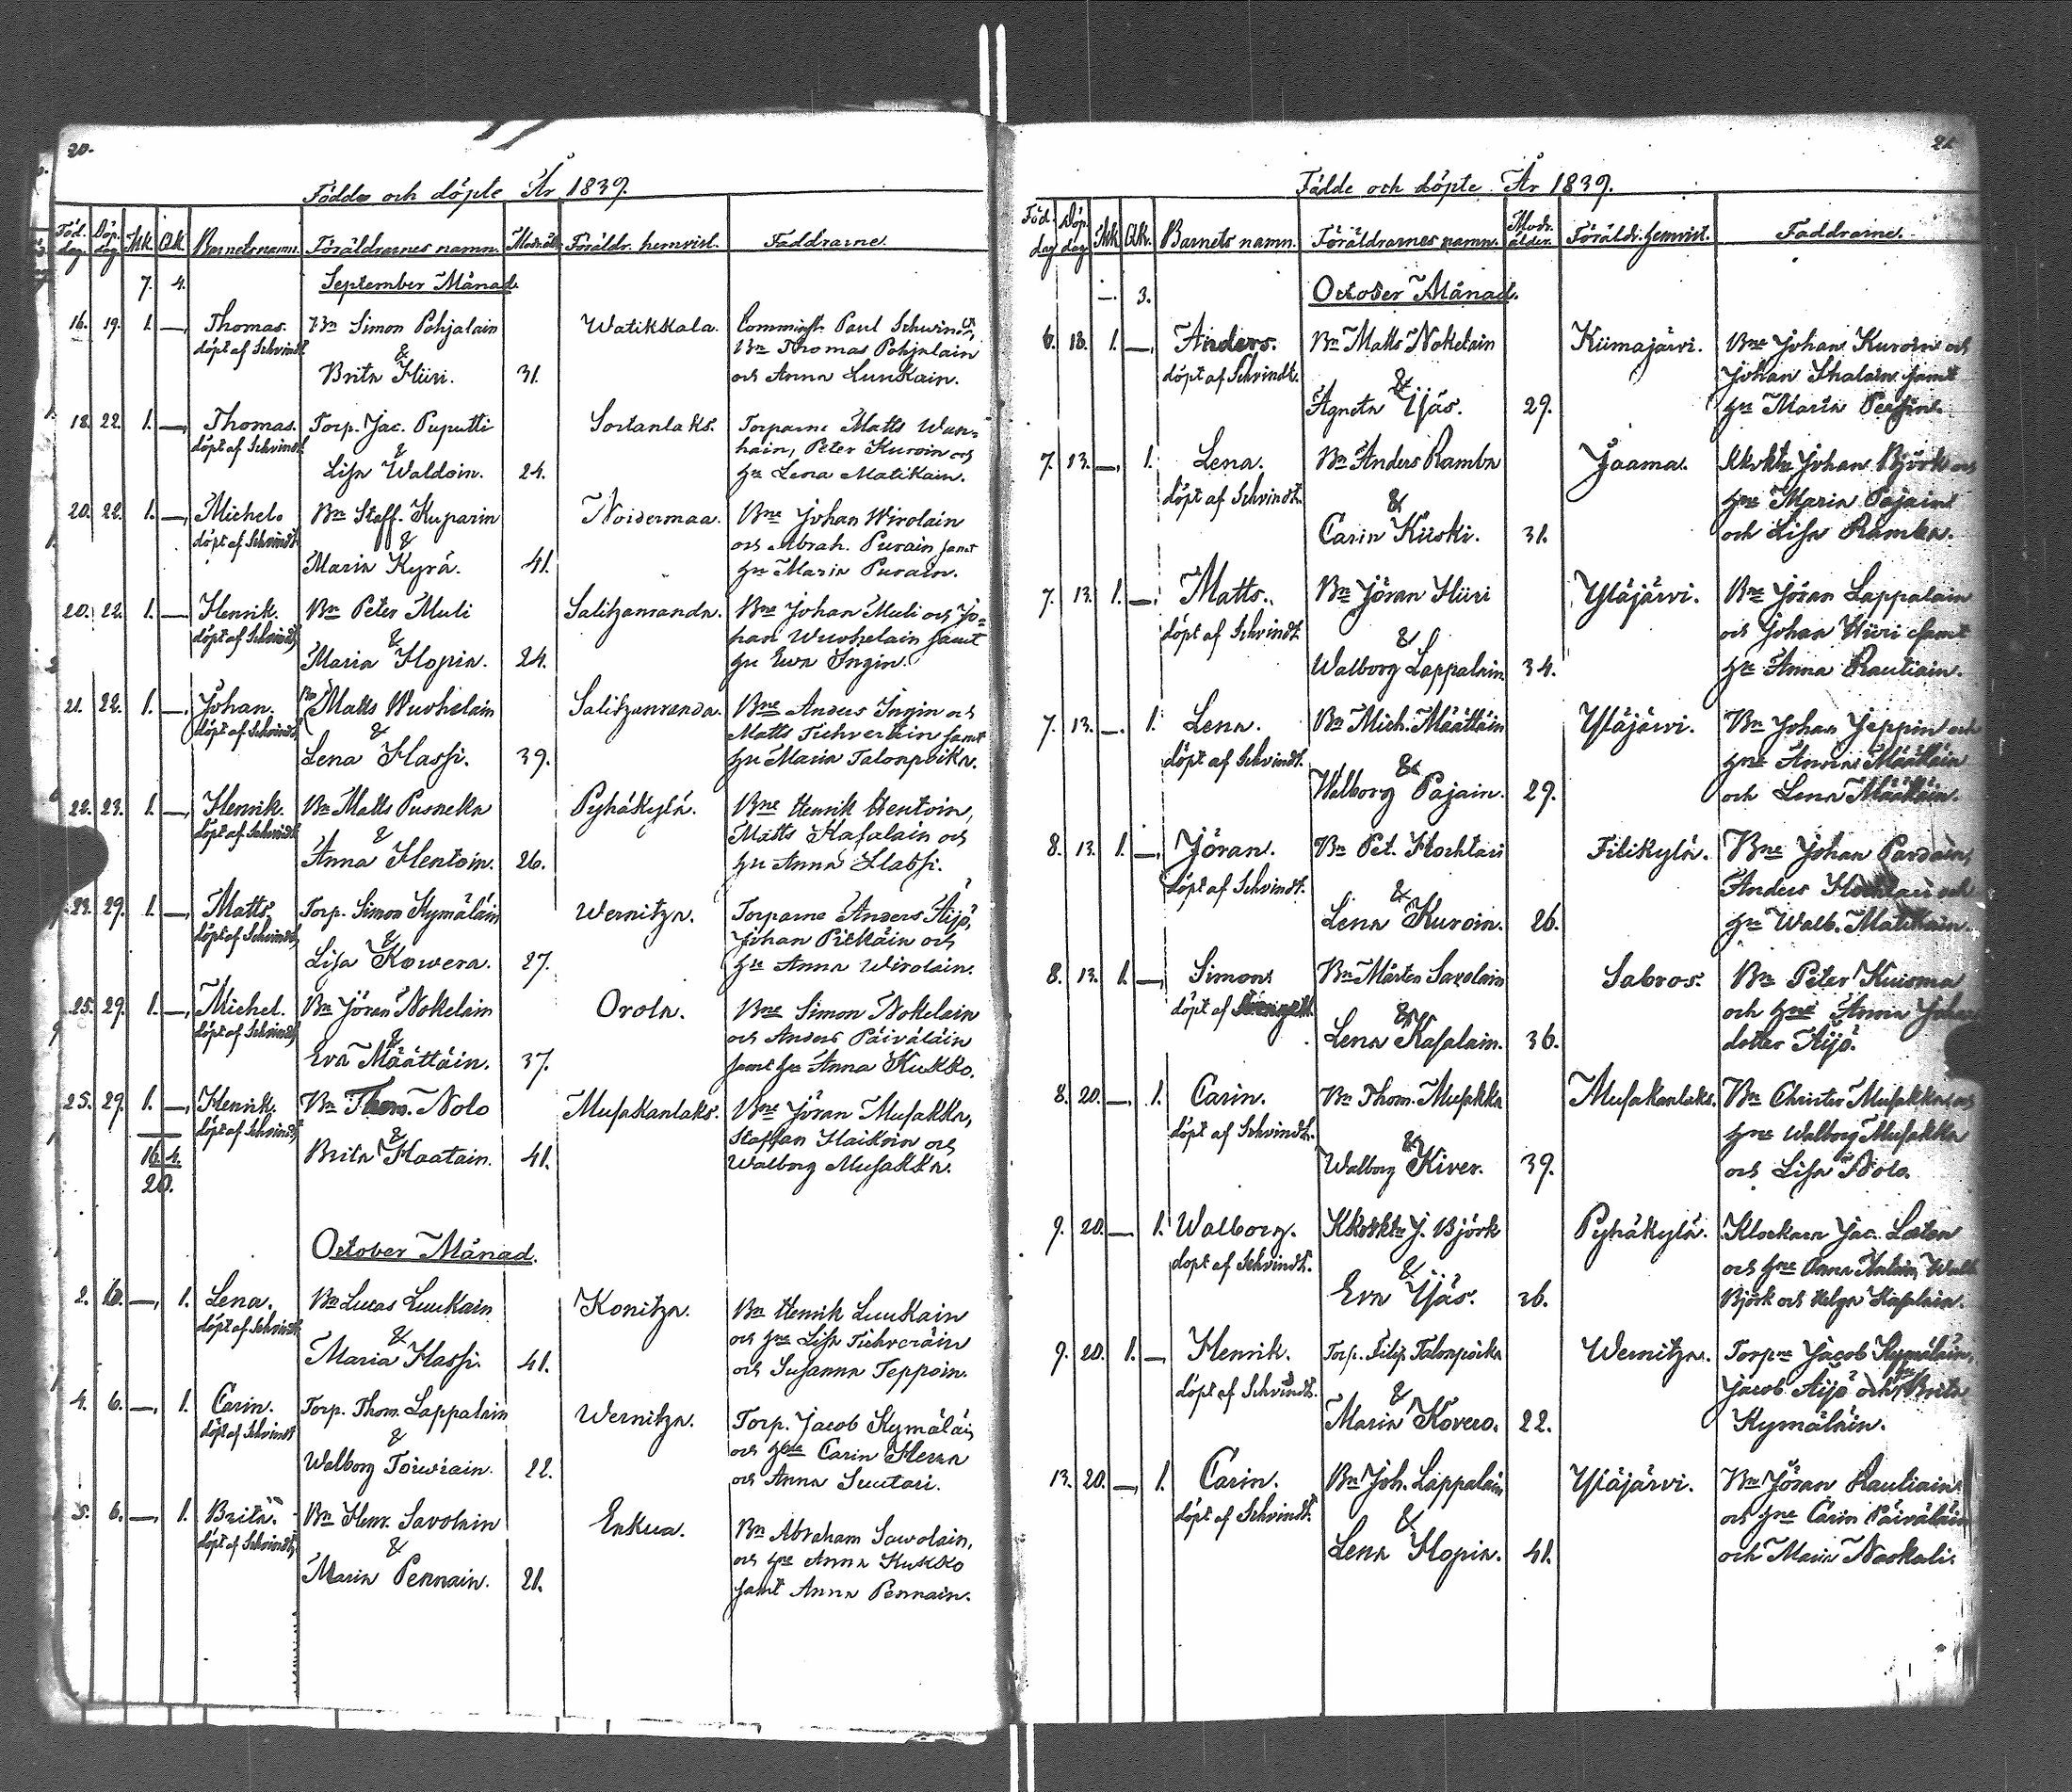 20.
Födde och döpte År 1839.
Föd. dag. Döp. dag. Mk. Qk. Barnets namn. Föräldrarnes namn. Föräldr. hemvist. Faddrarne.
7. 4. September Månad.
16. 19. 1. — Thomas. Bn Simon Pohjalain Watikkala. Comminist. Paul Schwindt,
döpt af Schvindt & Bn Thomas Pohjalain
Brita Hiiri. 31. och Anna Luukain.
18. 22. 1. — Thomas. Torp. Jac. Puputti Sortanlaks. Torparne Matts Wan=
döpt af Schvindt & hain, Peter Kuroin och
Lisa Waldoin. 24. hu Lena Matikain.
20. 22. 1. — Michel. Bn Staff. Kuparin Noidermaa. Bne Johan Wirolain
döpt af Schvindt & och Abrah. Purain samt
Maria Kyrä. 41. hu Maria Purain.
20. 22. 1. — Henrik. Bn Peter Muli Salitzanranda. Bne Johan Muli och Jo=
döpt af Schvindt & han Wuohelain samt
Maria Hopia. 24. hu Ewa Ingin.
21. 22. 1. — Johan. Bn Matts Wuohelain Salitzanranda. Bne Anders Ingin och
döpt af Schvindt & Matts Tichverkin samt
Lena Hassi. 39. hu Maria Talonpoika.
22. 23. 1. — Henrik. Bn Matts Pusnekka Pyhäkylä. Bne Henrik Hentoin,
döpt af Schvindt & Matts Kasalain och
Anna Hentoin. 26. hu Anna Hassi.
23. 29. 1. — Matts. Torp. Simon Kymäläin Wernitza. Torparne Anders Äijö,
döpt af Schvindt & Johan Pitkäin och
Lisa Kowera. 27. hu Anna Wirolain.
25. 29. 1. — Michel. Bn Jöran Nokelain Orola. Bne Simon Nokelain
döpt af Schvindt & och Anders Päiväläin
Eva Määttäin. 37. samt hu Anna Kukko.
25. 29. 1. — Henrik. Bn Thom. Nolo Musakanlaks. Bne Jöran Musakka,
döpt af Schvindt & Staffan Haikoin och
16. 4. Brita Haatain. 41. Walborg Musakka.
20.
October Månad.
2. 6. — 1. Lena. Bn Lucas Luukain Konitza. Bn Henrik Luukain
döpt af Schvindt & och hne Lisa Tichveräin
Maria Hassi. 41. och Susanna Teppoin.
4. 6. — 1. Carin. Torp. Thom. Lappalain Wernitza. Torp. Jacob Kymäläin
döpt af Schvindt & och hne Carin Herra
Walborg Toiwiain. 22. och Anna Suutari.
5. 6. — 1. Brita. Bn Henr. Savolain Enkua. Bn Abraham Sawolain,
döpt af Schvindt & och hne Anna Kukko
Maria Pennain. 21. samt Anna Pennain.
21.
Födde och döpte År 1839.
Föd. dag Döp. dag Mk. Qk. Barnets namn. Föräldrarnes namn. Modr. ålder. Föräldr. hemvist. Faddrarne.
—. 3. October Månad.
6. 13. 1. — Anders. Bn Matts Nokelain Kiimajärvi. Bne Johan Kuroin och
döpt af Schvindt. & Johan Ihalain samt
Agneta Ijäs. 29. hu Maria
7. 13. — 1. Lena. Bn Anders Ramba Jaama. Johan Björk och
döpt af Schvindt. & hne Maria Pajain
Carin Kiiski. 31. och Lisa Ramba.
7. 13. 1. — Matts. Bn Jöran Hiiri Yläjärvi. Bne Jöran Lappalain
döpt af Schvindt & och Johan Hiiri samt
Walborg Lappalain 34. hu Anna Rautiain.
7. 13. — 1. Lena. Bn Mich. Määttäin Yläjärvi. Bn Johan Jeppin och
döpt af Schvindt. & hne Anna Määttäin
Walborg Pajain. 29. och Lena Määttäin.
8. 13. 1. — Jöran. Bn Pet. Hochtari Filikylä. Bne Johan Pardain,
döpt af Schvindt. & Anders Hochtari och
Lena Kuroin. 26. hu Walb. Matikain.
8. 13. 1. — Simon. Bn Mårten Savolain Sabros. Bn Peter Kuisma
döpt af & och hne Anna Johans
Lena Kasalain. 36. dotter Äijö.
8. 20. — 1. Carin. Bn Thom. Musakka Musakanlaks. Bn Christer Musakka och
döpt af Schvindt. & hne Walborg Musakka
Walborg Kiver. 39. och Lisa Nolo.
9. 20. — 1. Walborg. J. Björk Pyhäkylä. Klockarn Jac.
döpt af Schvindt. & och hne Anna
Eva Ijäs. 36. Björk och Helga Kasalain.
9. 20. 1. — Henrik. Torp. Filip Talonpoika Wernitza. Torpne Jacob Kymäläin,
döpt af Schvindt. & Jacob Äijö och hu Brita
Maria Kovero. 22. Kymäläin.
13. 20. — 1. Carin. Bn Joh. Lappalain Yläjärvi. Bn Jöran Rautiain
döpt af Schvindt. & och hne Carin Päiväläin
Lena Hopia. 41. och Maria Naskali.